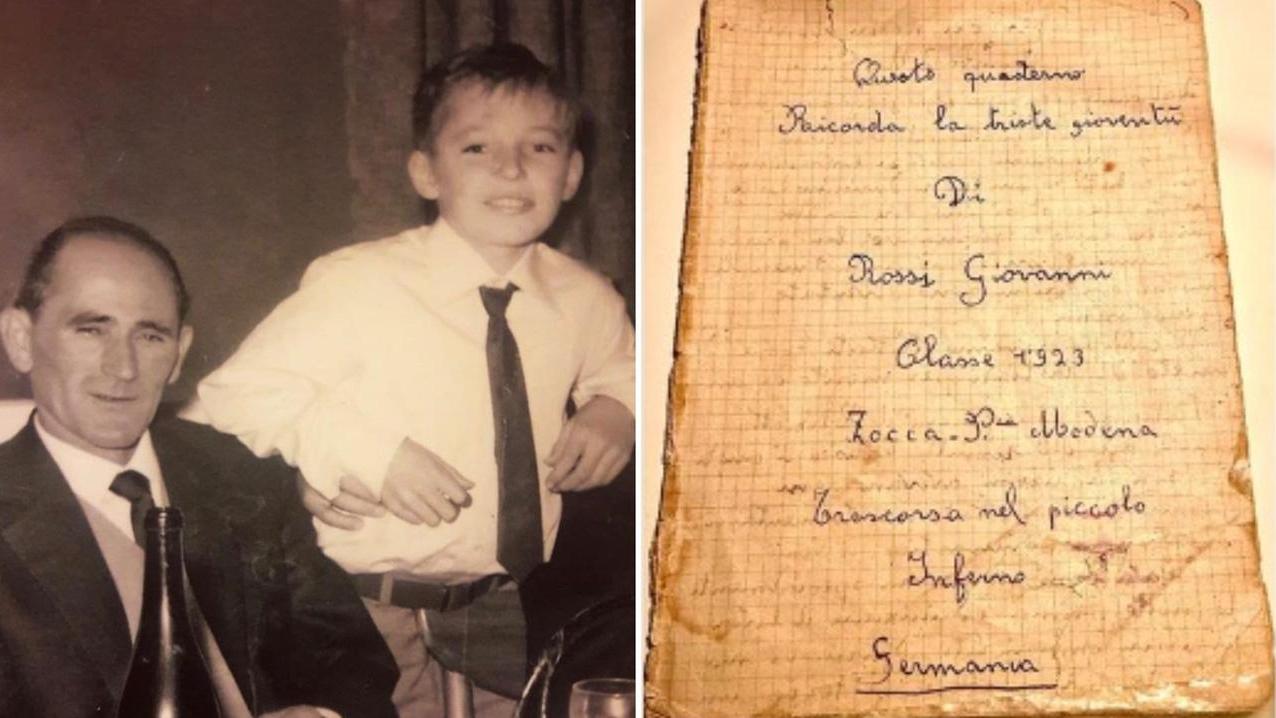 Questo quaderno
Raicorda la triste gioventù
Di
Rossi Giovanni
Classe 1923
Zocca-P.cia Modena
Trascorsa nel piccolo
Inferno
Germania